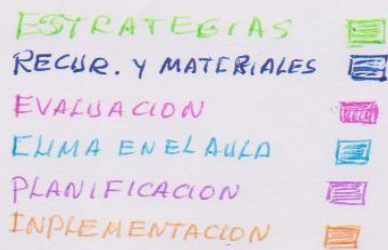 ESTRATEGIAS
RECUR. Y MATERIALES
EVALUACION
CLIMA EN EL AULA
PLANIFICACION
INPLEMENTACION